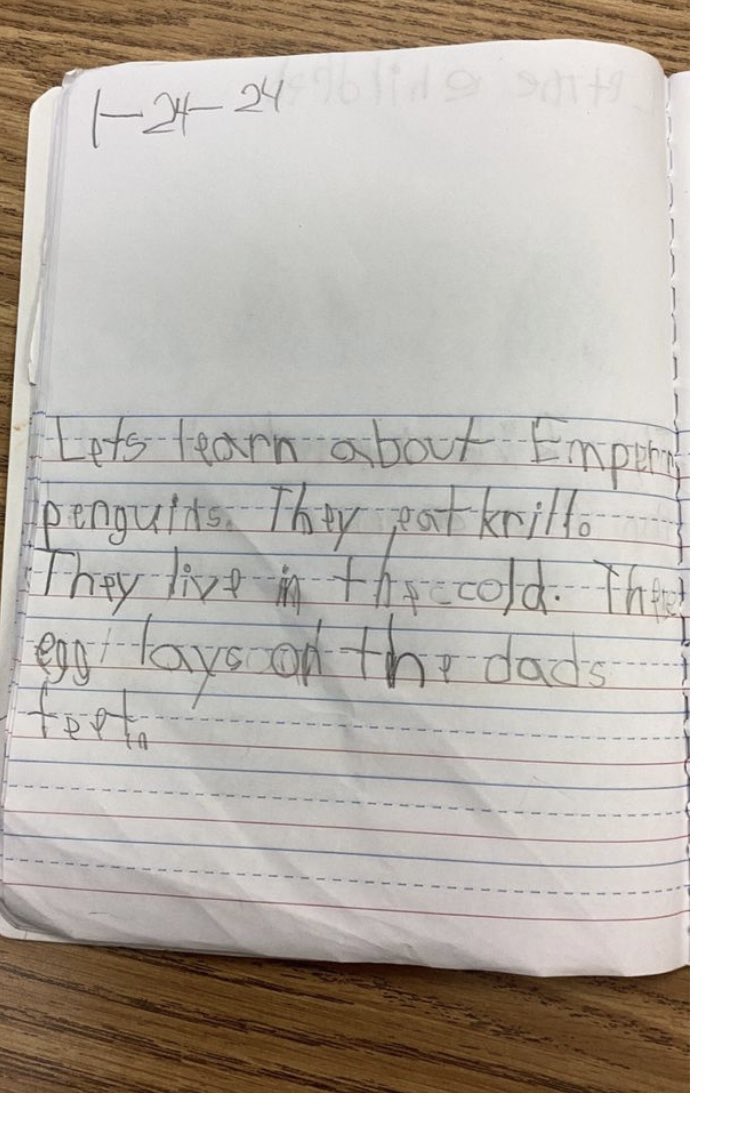 1-24-24
Lets learn about
penguins. They eat krill.
They live in the cold.
egg lays on the dads
feet.